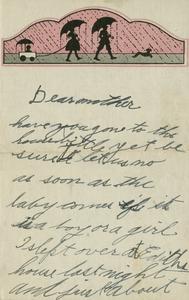 Dear mother
have you gone to the
yet be
sure to let us no
as soon as the
baby comes if it
is a boy or a girl
I slept over at Ediths
house last night
and just about